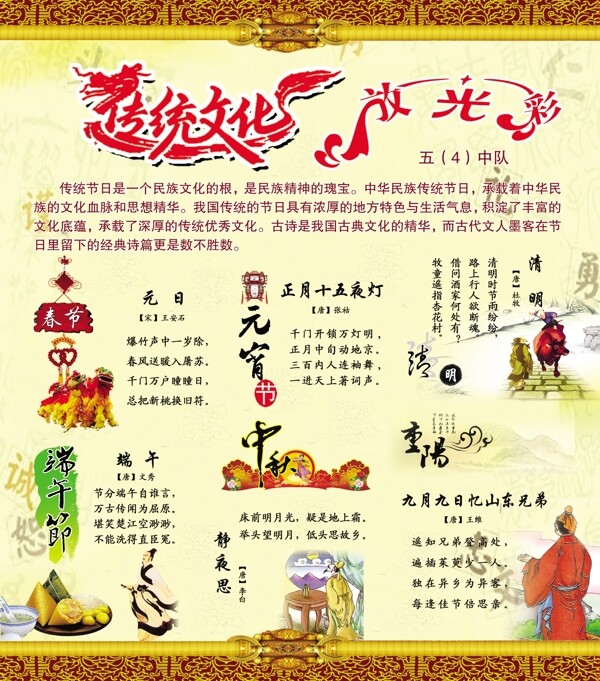 传统文化 放光彩
五（4）中队
传统节日是一个民族文化的根，是民族精神的瑰宝。中华民族传统节日，承载着中华民
族的文化血脉和思想精华。我国传统的节日具有浓厚的地方特色与生活气息，积淀了丰富的
文化底蕴，承载了深厚的传统优秀文化。古诗是我国古典文化的精华，而古代文人墨客在节
日里留下的经典诗篇更是数不胜数。
春节
元 日
【宋】王安石
爆竹声中一岁除，
春风送暖入屠苏。
千门万户曈曈日，
总把新桃换旧符。
元宵节
正月十五夜灯
【唐】张祜
千门开锁万灯明，
正月中旬动地京。
三百内人连袖舞，
一进天上著词声。
清明
【唐】杜牧
清明时节雨纷纷，
路上行人欲断魂。
借问酒家何处有？
牧童遥指杏花村。
清明
端午節
端 午
【唐】文秀
节分端午自谁言，
万古传闻为屈原。
堪笑楚江空渺渺，
不能洗得直臣冤。
中秋
床前明月光，疑是地上霜。
举头望明月，低头思故乡。
静夜思
【唐】李白
重陽
九月九日忆山东兄弟
【唐】王维
遥知兄弟登高处，
遍插茱萸少一人。
独在异乡为异客，
每逢佳节倍思亲。
诚
恕
礼
勇
谨